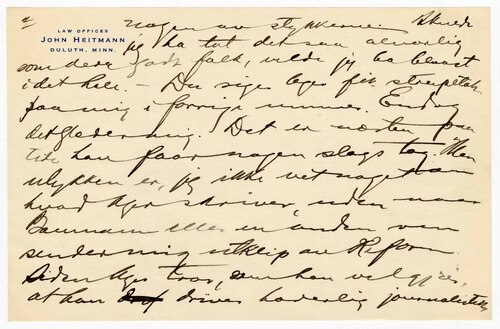 LAW OFFICES
JOHN HEITMANN
DULUTH, MINN.
nogen av stykkerne.
jeg ha tat det saa alvorlig
som dere godt folk, vilde jeg ha
i det hele. – Du siger fik
paa mig i forrige nummer. Endog
det glæder mig. Det er næsten paa
tide han faar nogen slags tag. Men
ulykken er, jeg ikke vet noget om
hvad skriver uden naar
Baumann eller en anden ven
sender mig utklip av Reform.
Siden tror, som han vel gjør,
at han driver haderlig journalistik